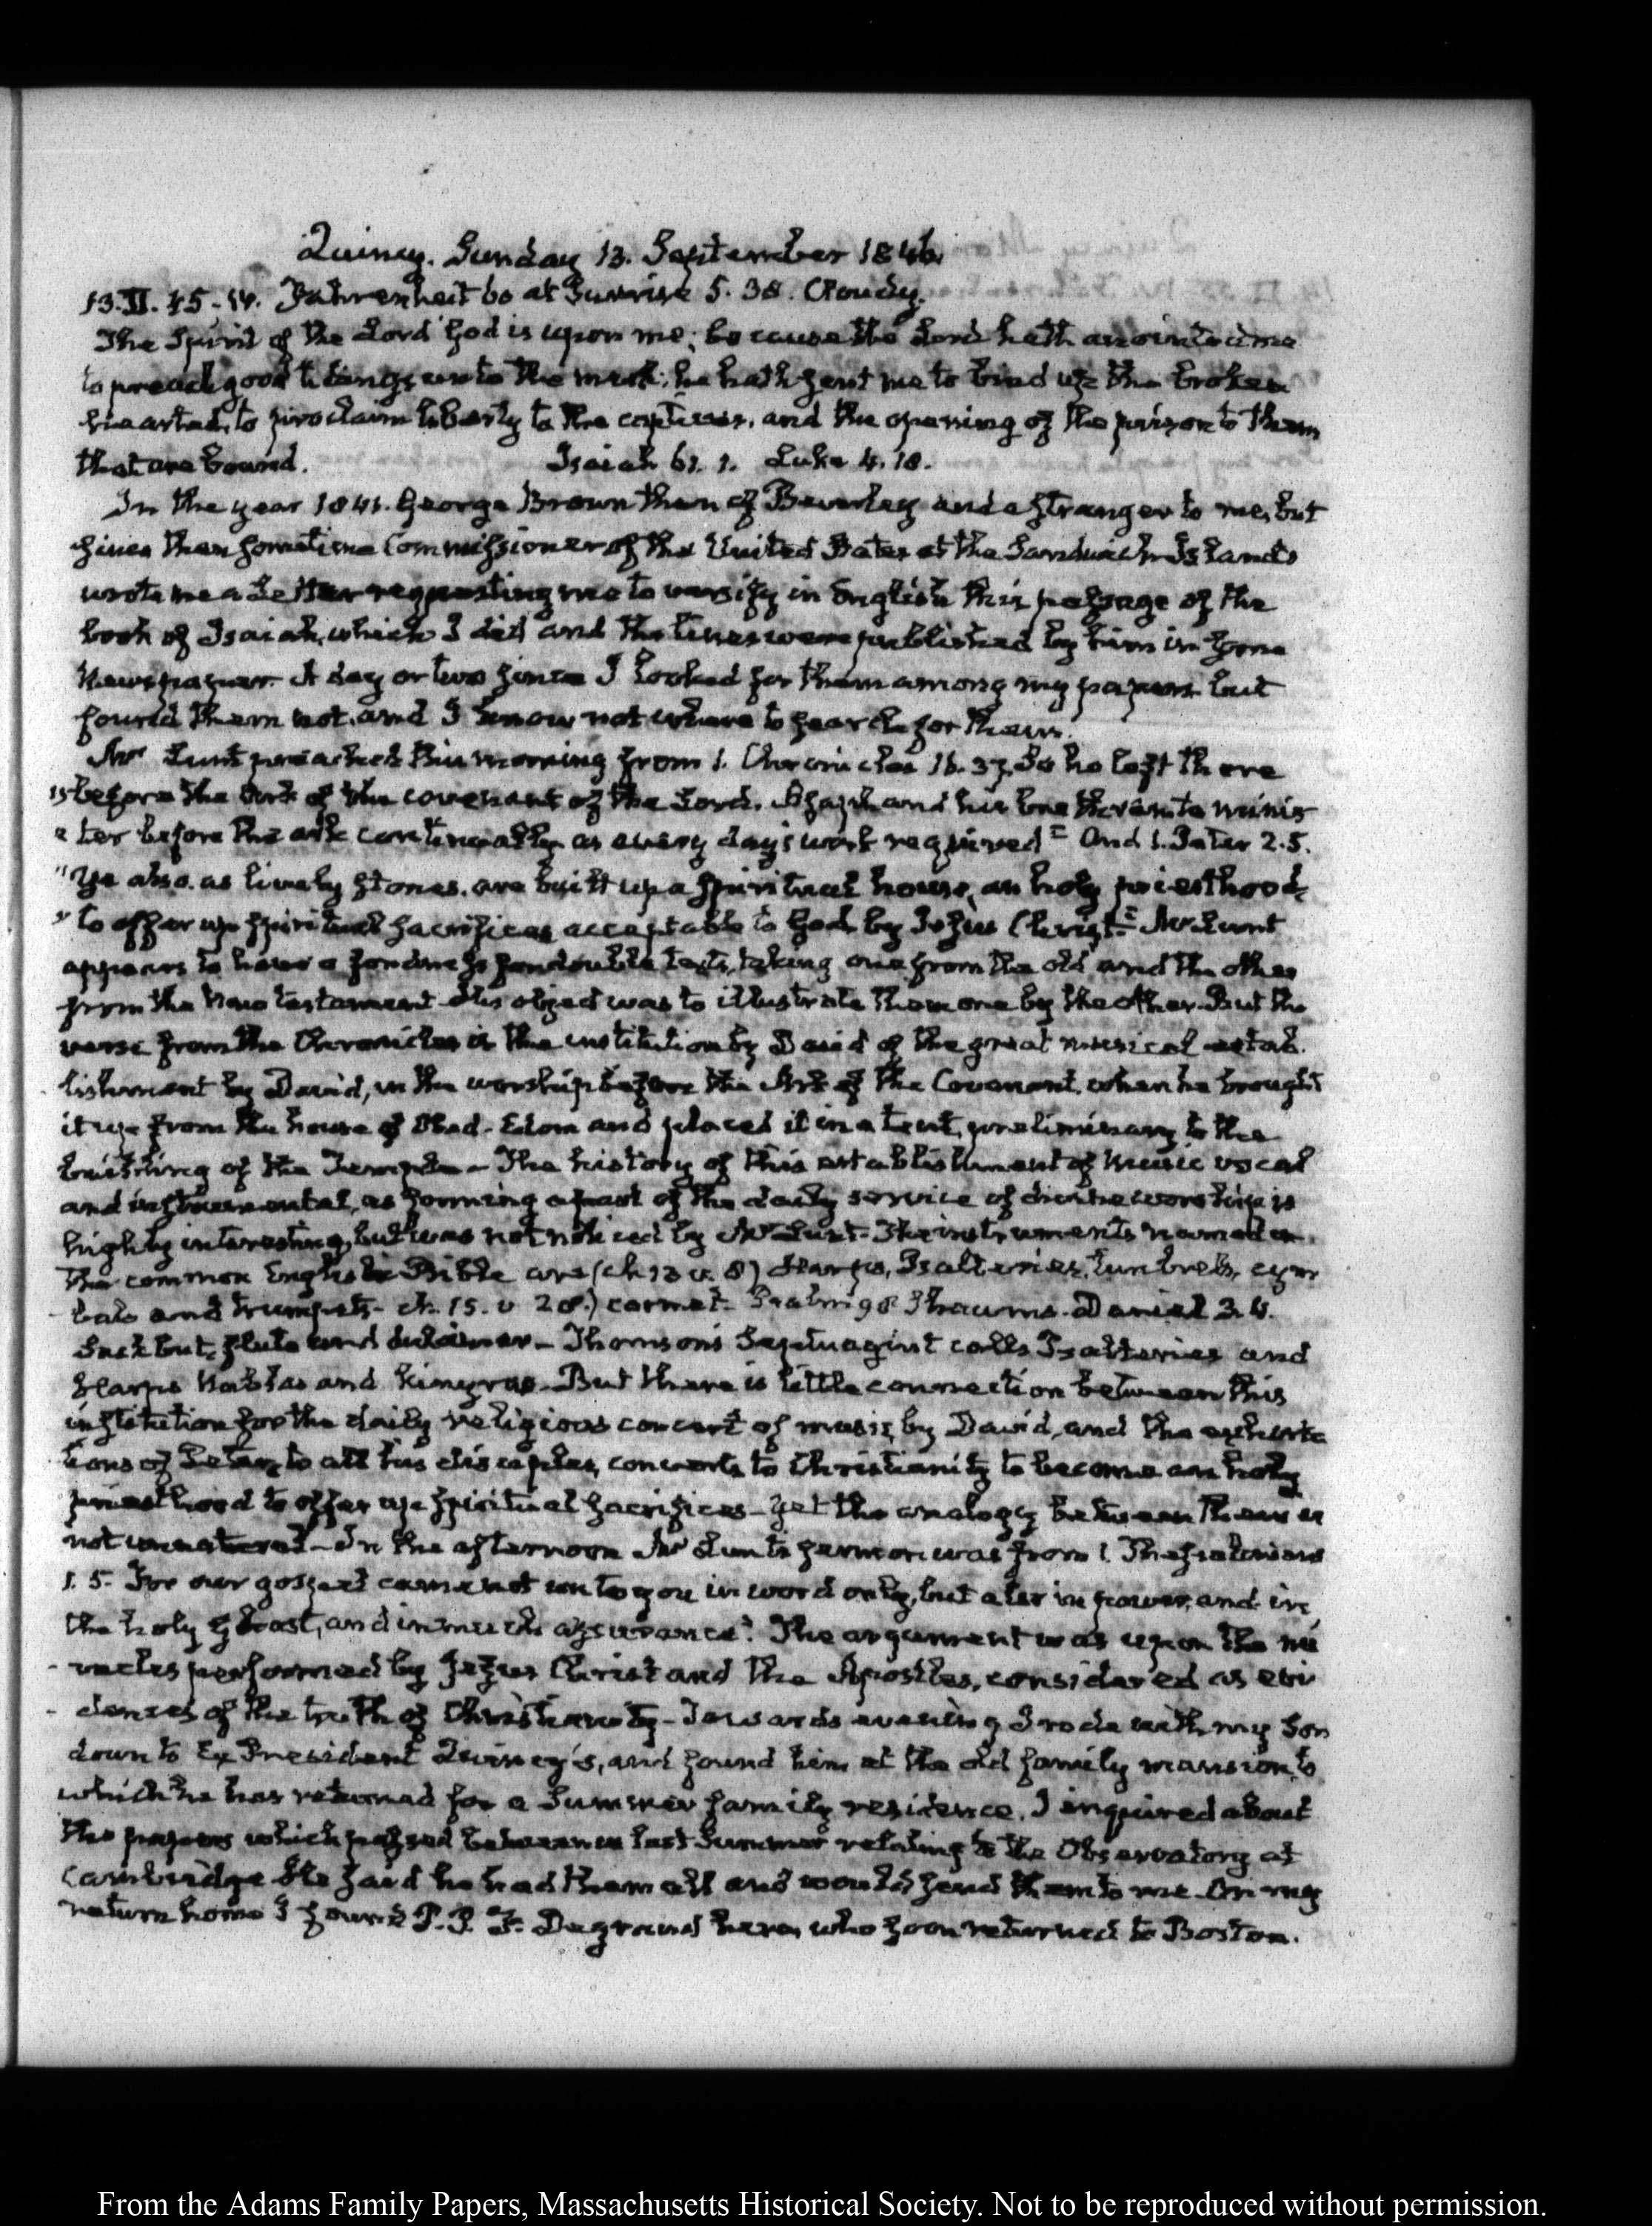 Quincy. Sunday 13. September 1846.
13. II. 45-IV. Fahrenheit 60 at Sunrise 5. 38. Cloudy.
The Spirit of the Lord God is upon me; because the Lord hath anointed me
to preach good tidings unto the meek; he hath sent me to bind up the broken
hearted, to proclaim liberty to the captives, and the opening of the prison to them
that are bound. Isaiah 61. 1. Luke 4. 18.
In the year 1841. George Brown then of Beverley and a stranger to me, but
since then sometime Commissioner of the United States at the Sandwich Islands
wrote me a Letter requesting me to versify in English this passage of the
book of Isaiah, which I did and the lines were published by him in some
Newspaper. A day or two since I looked for them among my papers but
found them not, and I know not where to search for them.
Mr Lunt preached this morning from 1. Chronicles 16. 37. So he left there
before the Ark of the covenant of the Lord, Asaph and his brethren to minis
ter before the ark continually as every day's work required" And 1. Peter 2. 5.
"Ye also, as lively stones, are built up a spiritual house, an holy priesthood,
to offer up spiritual sacrifices acceptable to God, by Jesus Christ." Mr Lunt
appears to have a fondness for double texts, taking one from the old, and the other
from the New testament. His object was to illustrate them one by the other. But the
verse from the Chronicles is the institution by David of the great musical estab-
lishment by David, in the worship before the Ark of the Covenant, when he brought
it up from the house of Obed-Edom and placed it in a tent, preliminary to the
building of the Temple - The history of this establishment of music vocal
and instrumental, as forming a part of the daily service of divine worship is
highly interesting, but was not noticed by Mr Lunt - The instruments named in
the common English Bible are (ch 13 v. 8) Harps, Psalteries, timbrels, cym
bals and trumpets - ch. 15. v 28.) cornet - Psalm 98 Shawms - Daniel 3. 4.
Sackbut, flute and dulcimer - Thomson's Septuagint calls Psalteries and
Harps Nablas and Kinyras - But there is little connection between this
institution for the daily religious concert of music, by David, and the exhorta
tions of Peter, to all his disciples, converts to Christianity to become an holy
priesthood to offer up spiritual sacrifices - yet the analogy between them is
not unnatural - In the afternoon Mr Lunt's sermon was from 1. Thessalonians
1. 5. For our gospel came not unto you in word only, but also in power, and in
the holy ghost, and in much assurance". The argument was upon the mi
racles performed by Jesus Christ and the Apostles, considered as evi
dences of the truth of Christianity - Towards evening I rode with my Son
down to Ex President Quincy's, and found him at the old family mansion, to
which he has returned for a Summer family residence. I enquired about
the papers which passed between us last Summer relating to the Observatory at
Cambridge. He said he had them all and would send them to me. On my
return home I found P. P. F. Degrand here, who soon returned to Boston.
From the Adams Family Papers, Massachusetts Historical Society. Not to be reproduced without permission.